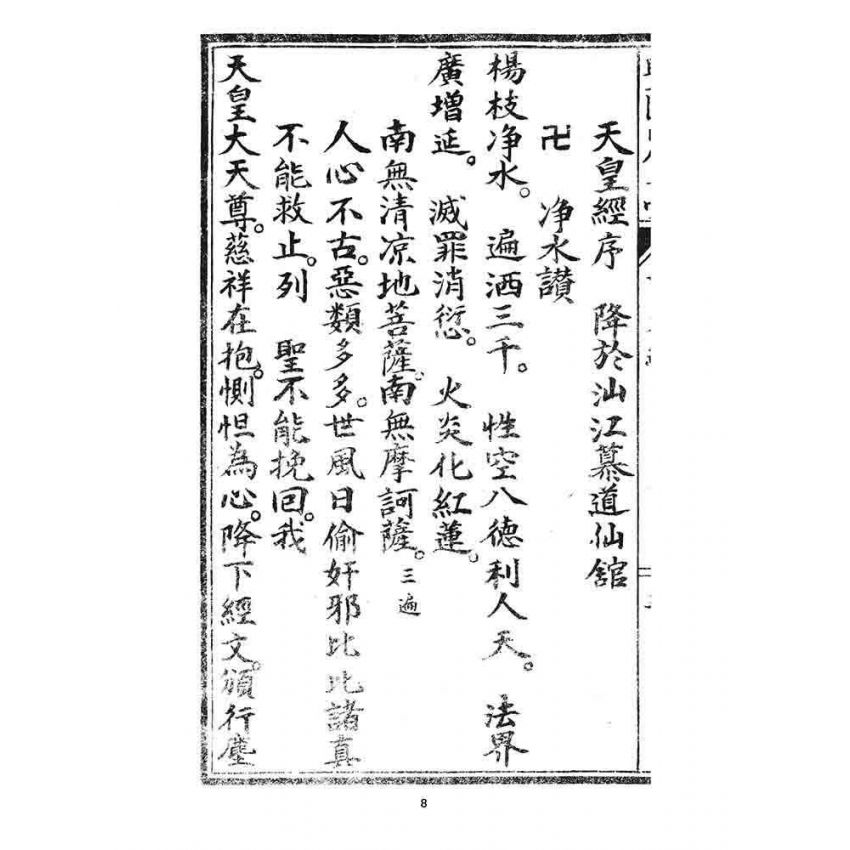 天皇經序　降於汕江慕道仙舘
卍　净水讚
楊枝净水。遍洒三千。性空八德利人天。法界
廣增延。滅罪消愆。火炎化紅蓮。
南無清凉地菩薩。南無摩訶薩。三遍
人心不古。惡類多多。世風日偷奸邪比比諸真
不能救止。列　聖不能挽回。我
天皇大天尊。慈祥在抱。惻怛為心。降下經文。頒行塵
8